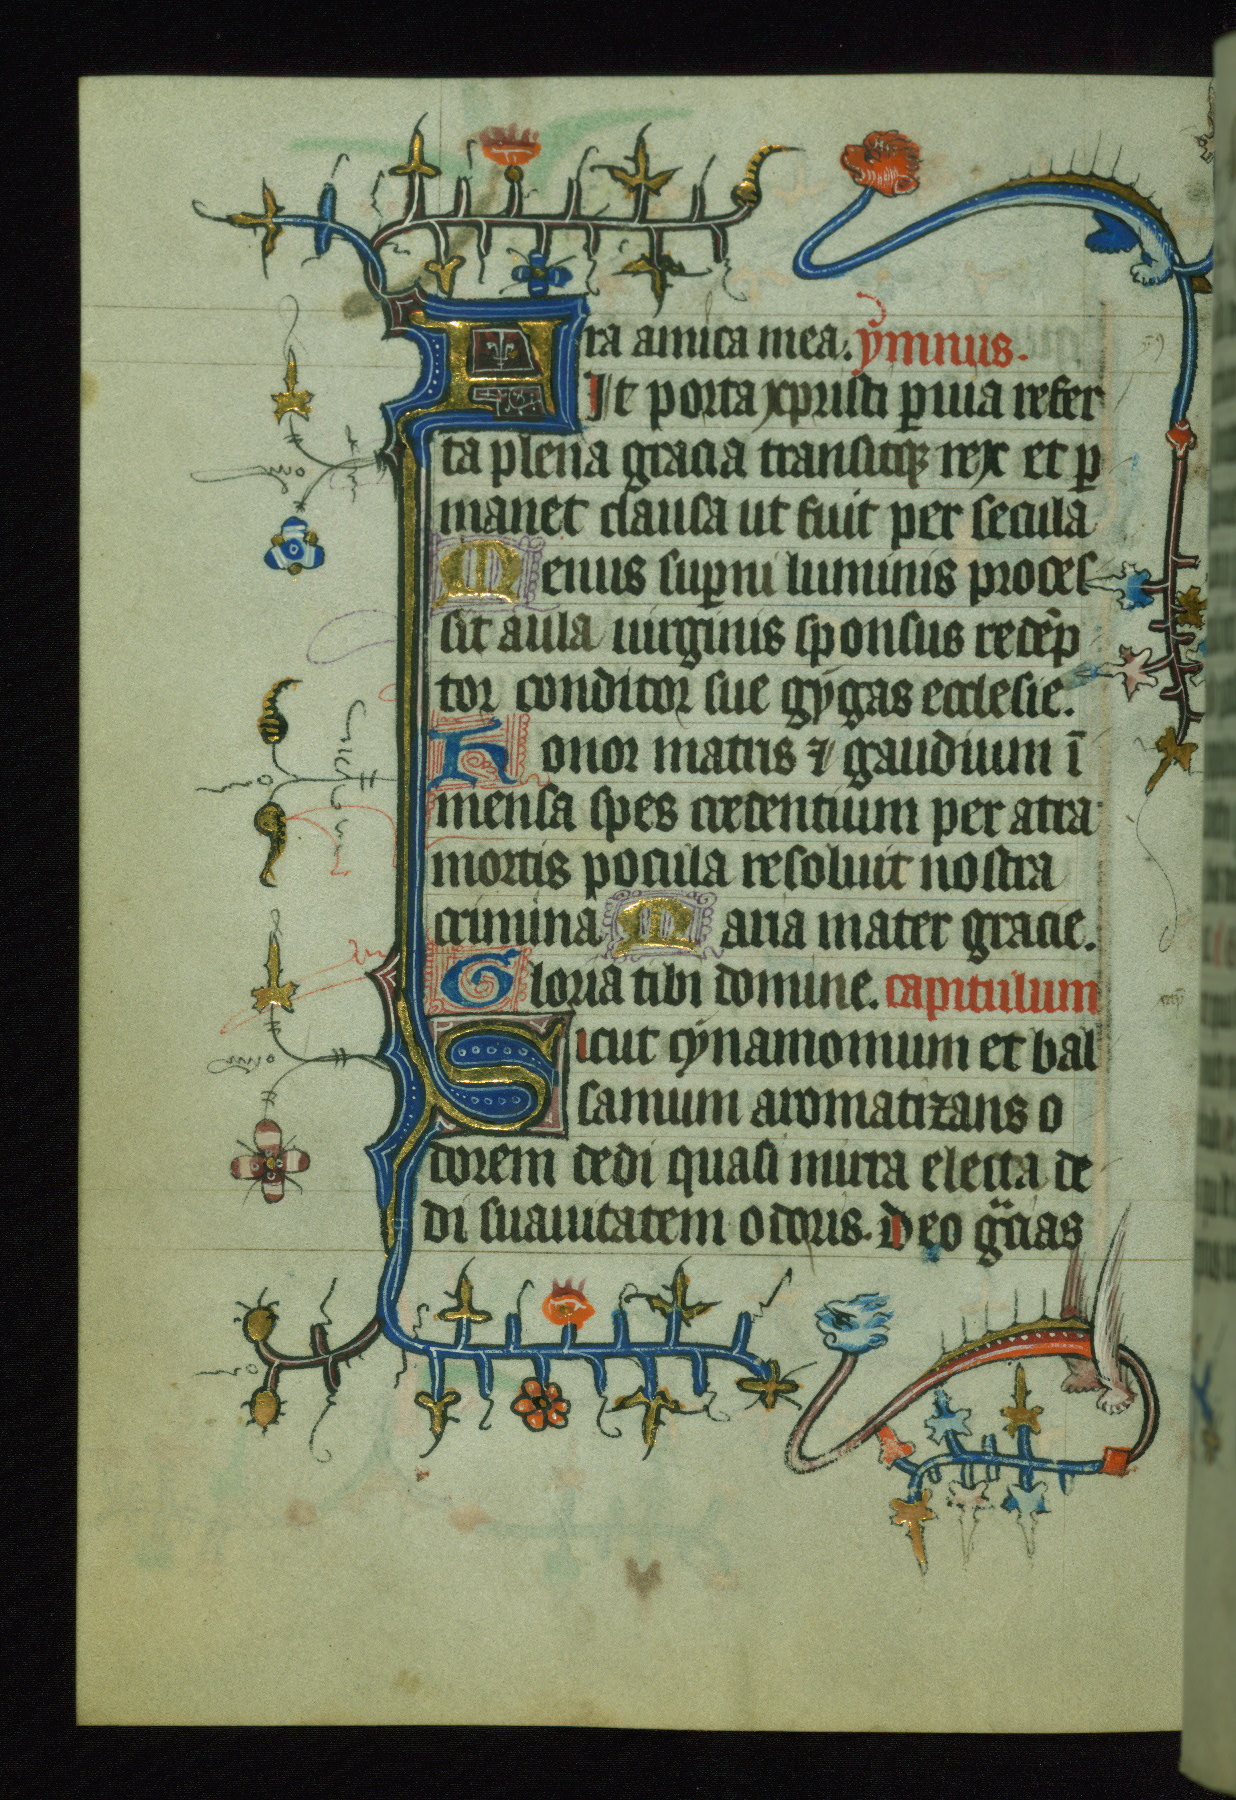 ra amica mea. ẏmnus.
Fit porta xpristi ꝑuia refer
ta plena gracia transitqꝫ rex et ꝑ
manet clausa ut fuit per secula
Genus suꝑni luminis proces
sit aula uirginis sponsus redēp
tor conditor sue gẏgas ecclesie.
honor matris ⁊ gaudium ī
mensa spes credentium per atra
mortis pocula resoluit nostra
crimina Maria mater gracie.
Gloria tibi domine. capitulum
Sicut cẏnamomum et bal
samum aromatizans o
dorem dedi quasi mirra electa de
di suauitatem odoris. Deo gͣcias